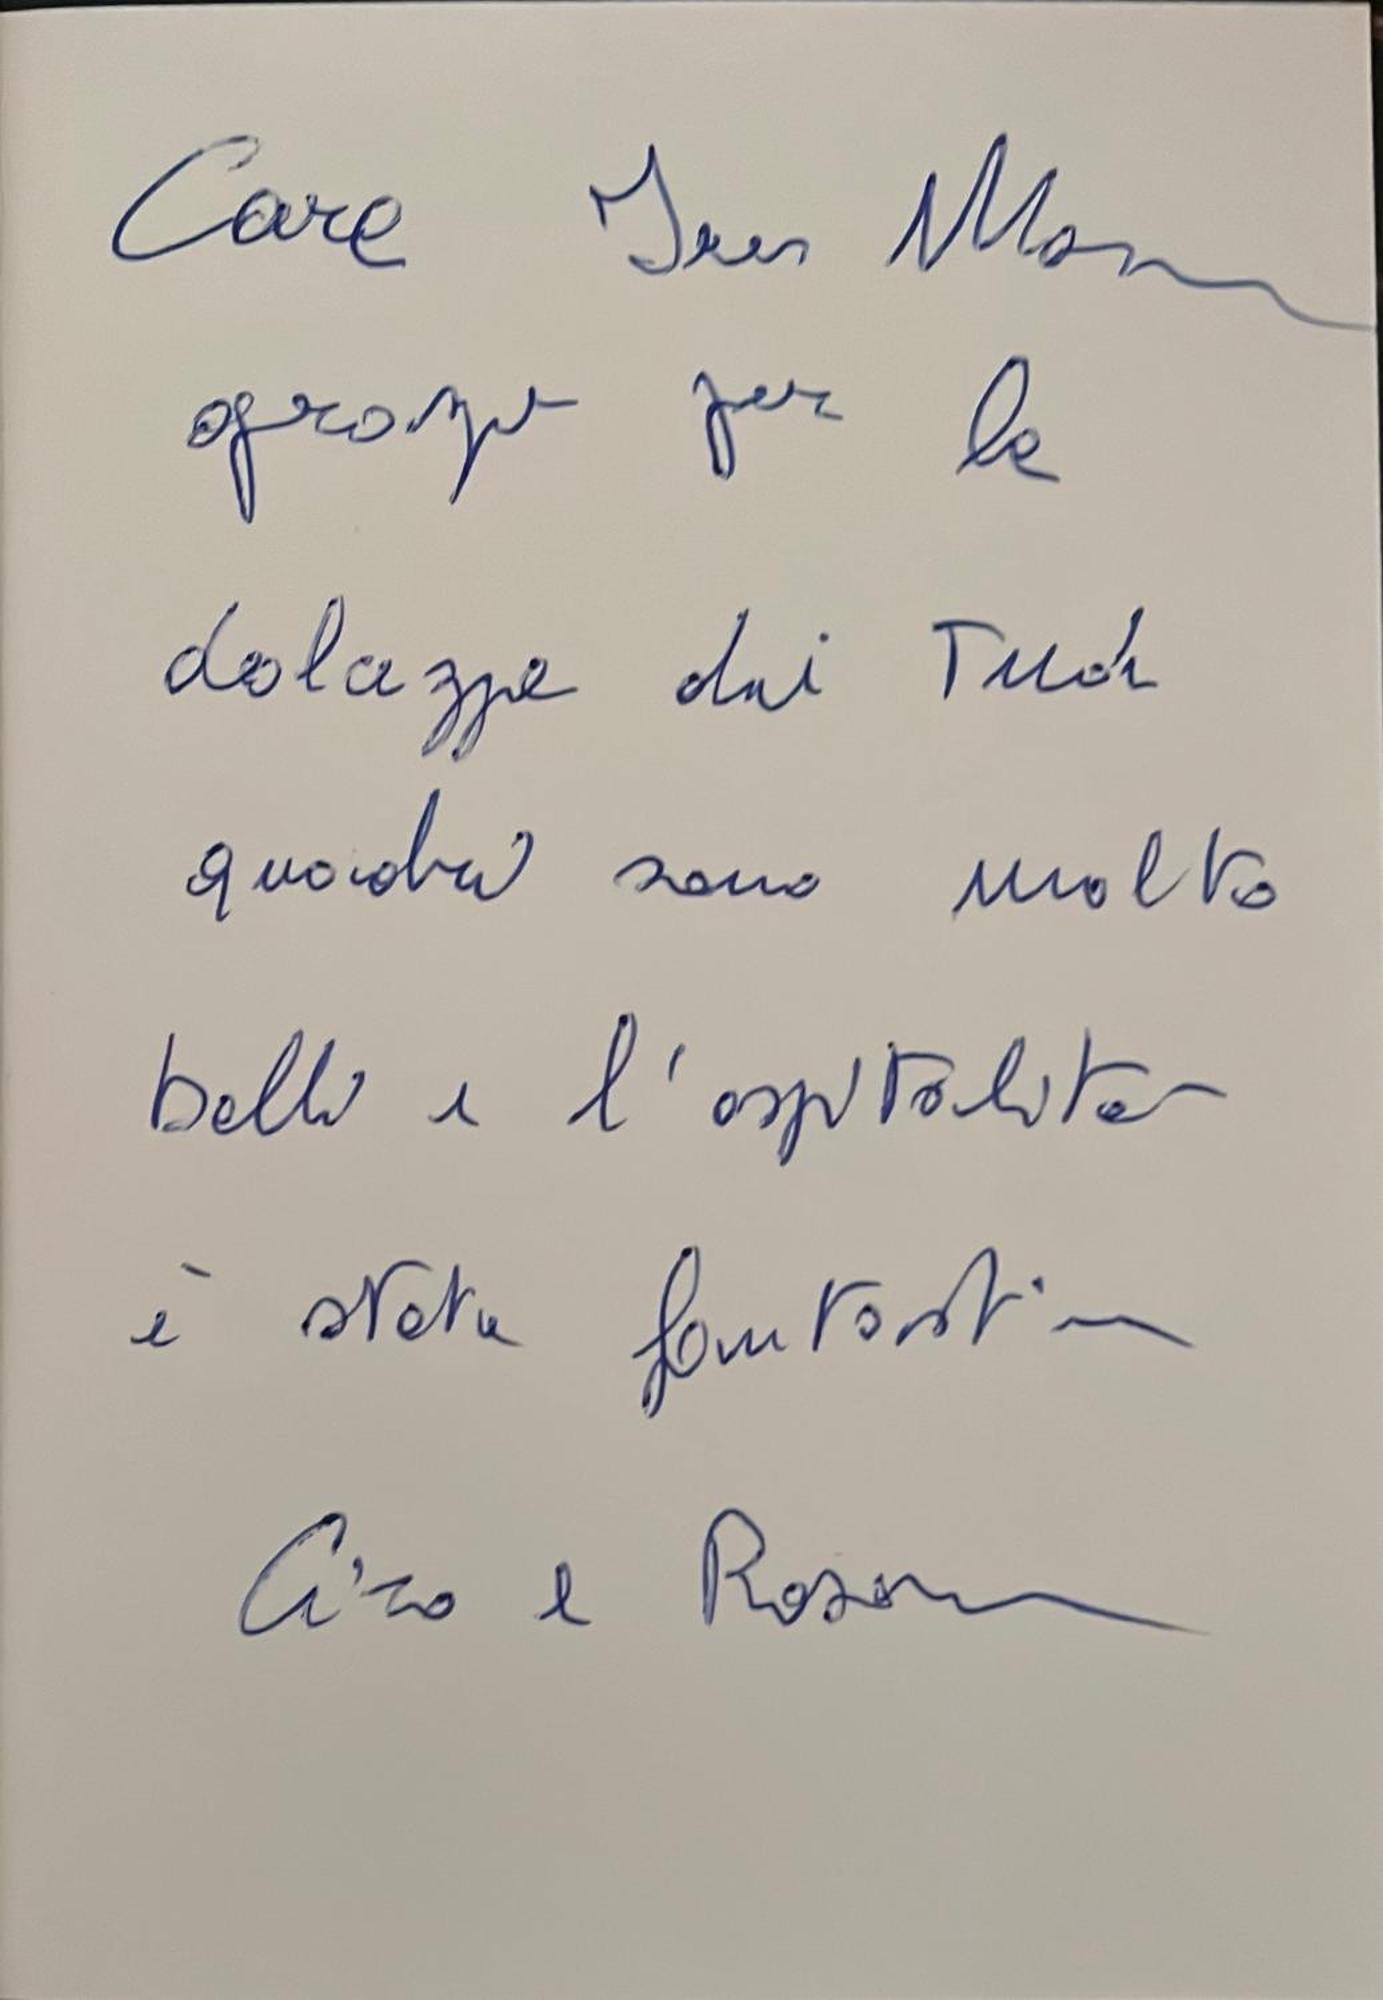 Care
grazie per la
dolcezza dei Tuoi
quadri sono molto
belli e l'ospitalità
è stata fantastica
Ciro e Rosanna